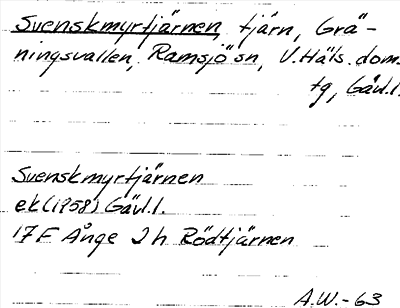 Svenskmyrtjärnen, tjärn, Grä-
ningsvallen, Ramsjö sn, V. Häls. dom.
tg, Gävl.l.
Svenskmyrtjärnen
ek (1958) Gävl.l.
17 F Ånge 2 h Rödtjärnen
A.W.-63